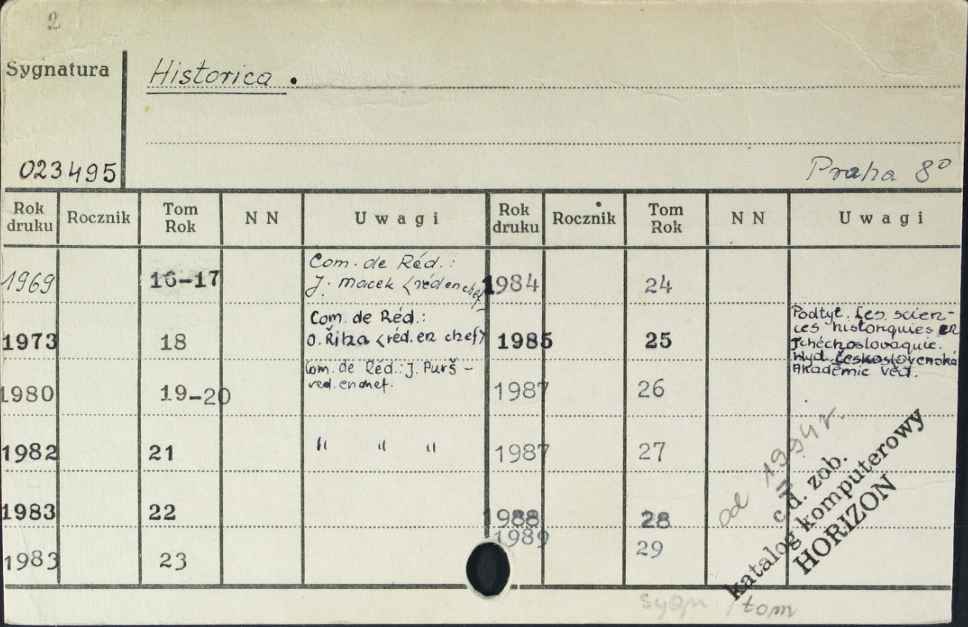 2
Sygnatura
Historica.
023495
Praha 8°
Rok druku Rocznik Tom Rok N N Uwagi Rok druku Rocznik Tom Rok N N Uwagi
1969 16-17 Com. de Réd.:
J. Macek <réd en chef>
1984 24
1973 18 Com. de Réd.:
O. Říha <réd. en chef>
1985 25 Podtyt. Les scien-
ces historiques en
Tchéchoslovaquie.
Wyd. Československá
Akademie věd.
1980 19-20 Com. de Réd.: J. Purš -
red. en chef.
1987 26
1982 21 " " "
1987 27
1983 22
1988 28
1983 23
1989 29
od 1994 r.
c.d. zob.
katalog komputerowy
HORIZON
sygn /tom